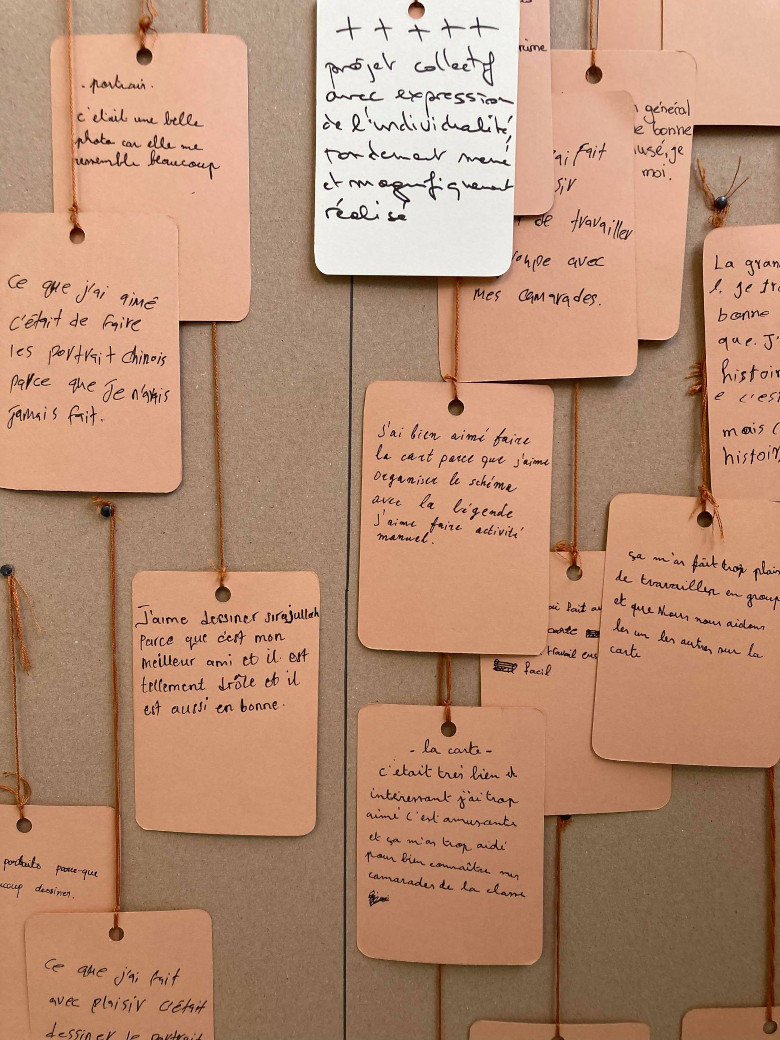 - portrait -
c'était une belle
photo car elle me
ressemble beaucoup
Ce que j'ai aimé
c'était de faire
les portrait chinois
parce que je n'avais
jamais fait.
J'aime dessiner sirajullah
parce que c'est mon
meilleur ami et il est
tellement drôle et il
est aussi en bonne.
portraits parce-que
dessiner.
Ce que j'ai fait
avec plaisir c'était
dessiner le portrait
+ + + + +
projet collectif
avec expression
de l'individualité,
rondement mené
et magnifiquement
réalisé
général
bonne
je
moi.
fait
de travailler
avec
mes camarades.
J'ai bien aimé faire
la cart parce que j'aime
organiser le schéma
avec la légende
J'aime faire activité
manuel.
fait
carte
travail
facil
- la carte -
c'était très bien et
intéressant j'ai trop
aimé c'est amusante
et ça m'as trop aidé
pour bien connaître mes
camarades de la classe
La
je
bonne
que. J'
mais
ça m'as fait trop
de travailler en
et que Nous nous aidons
les un les autres sur la
carte